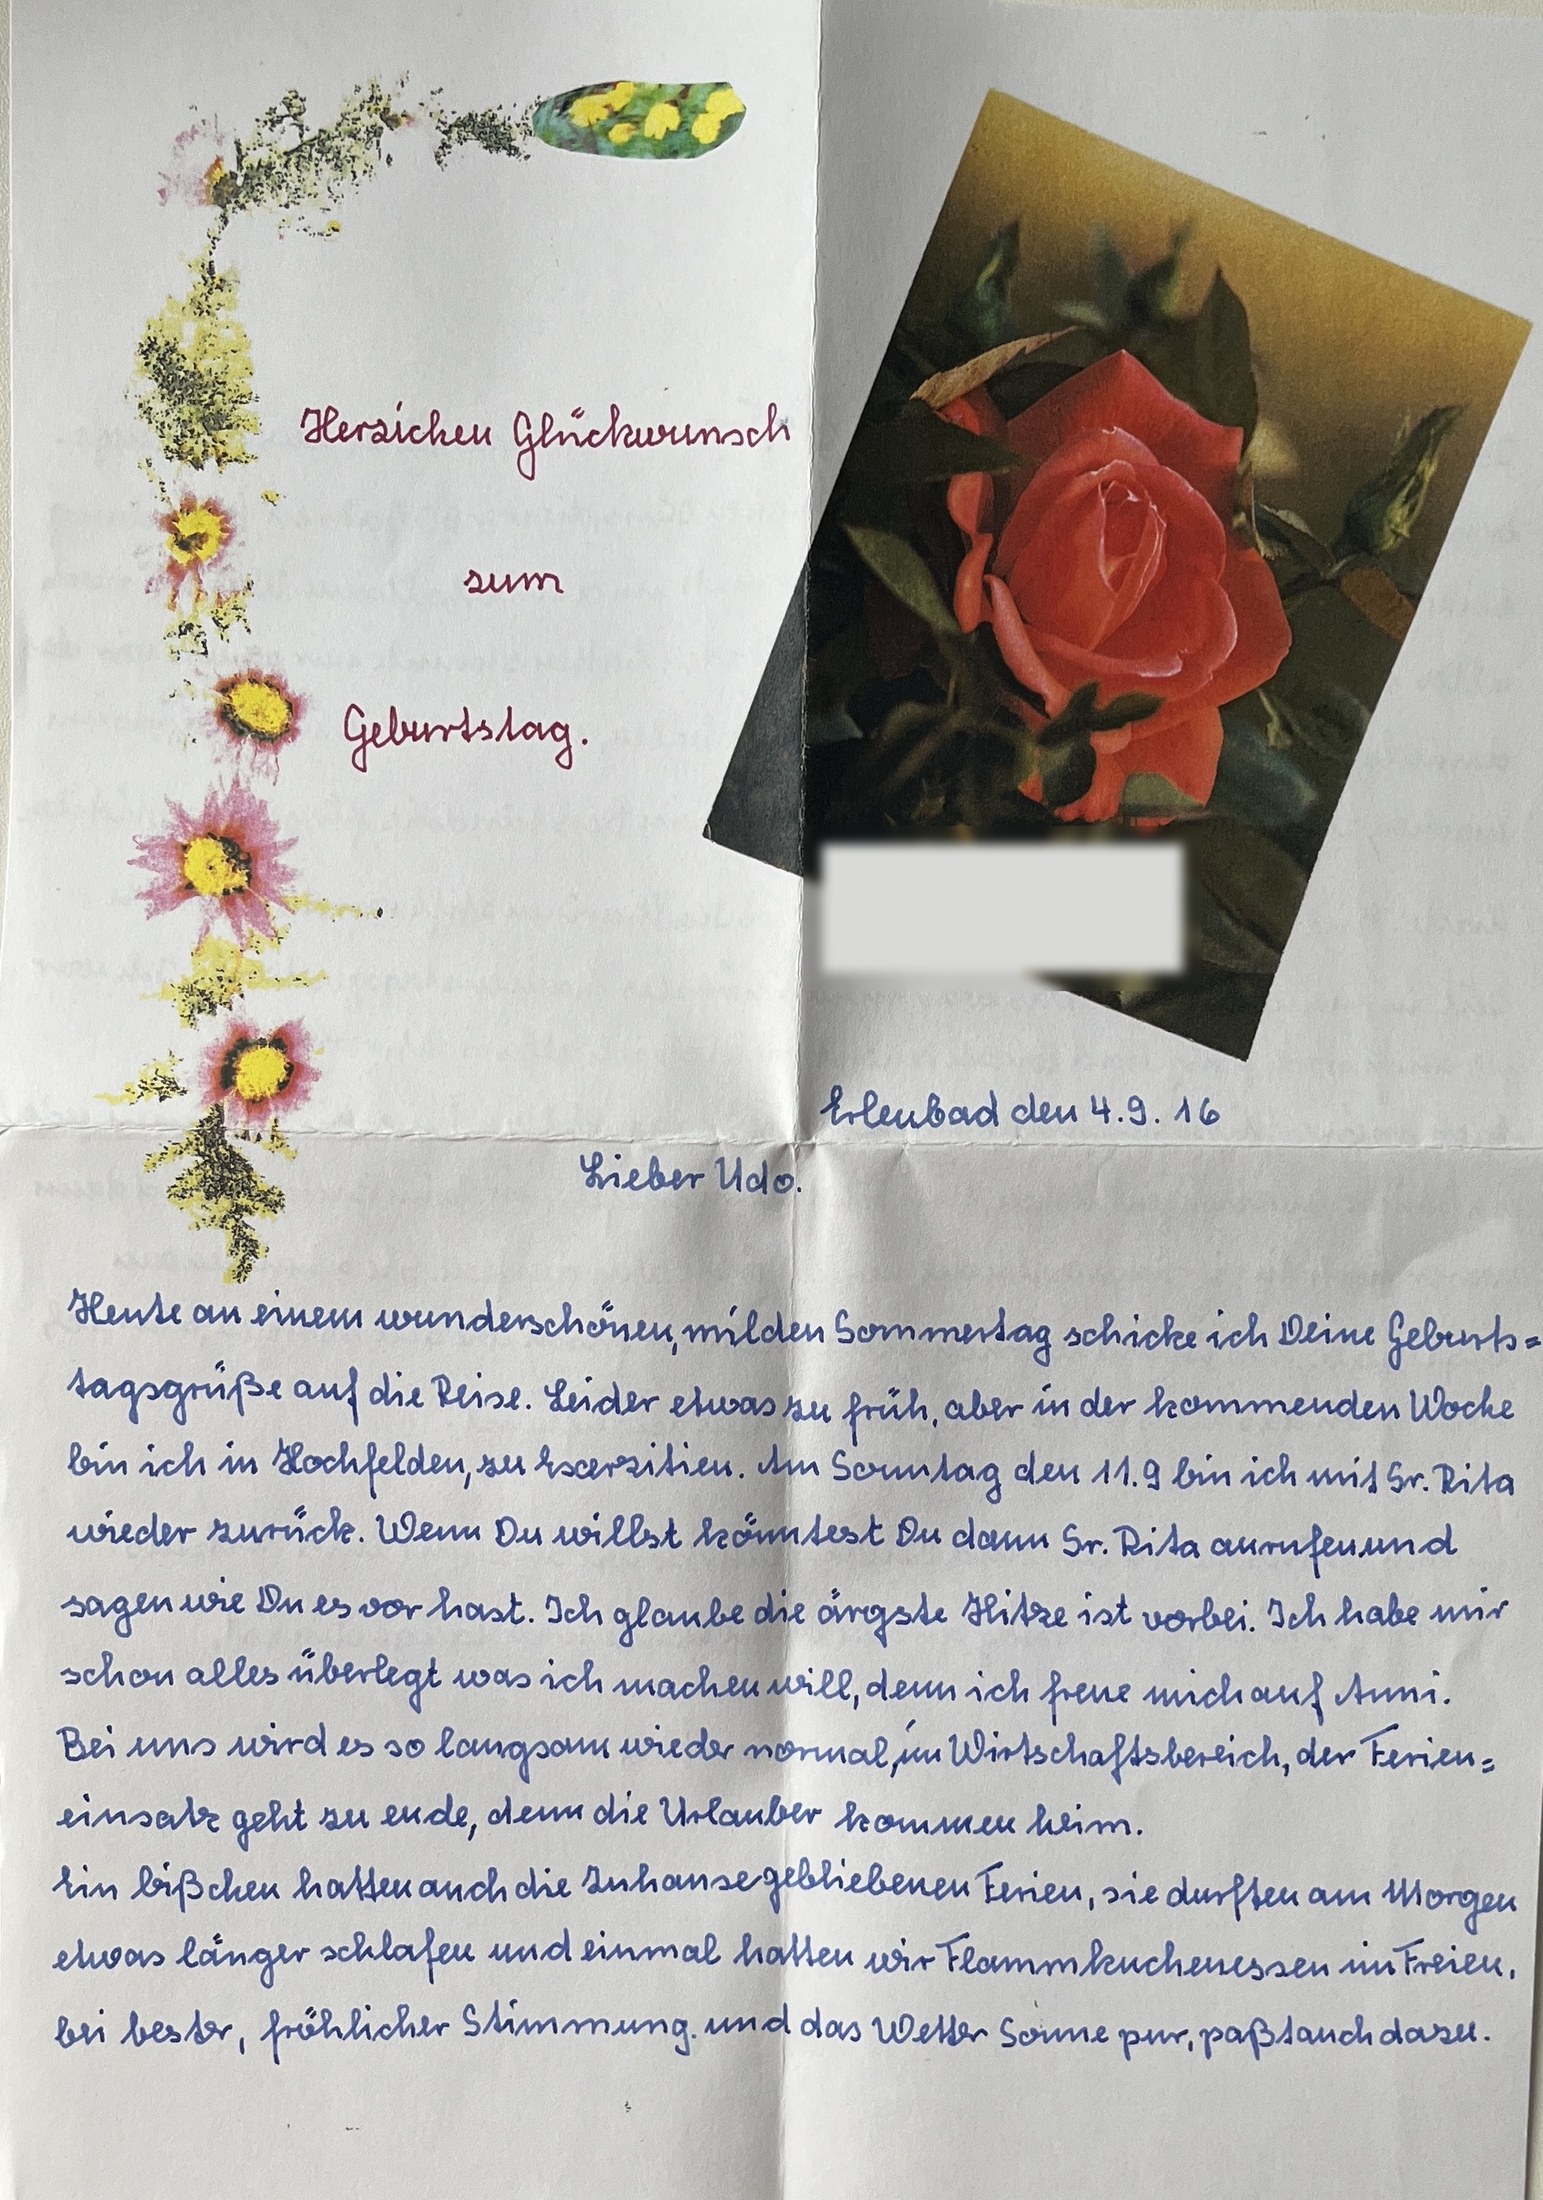 Herzichen Glückwunsch
zum
Geburtstag.
Erlenbad den 4.9.16
Lieber Udo.
Heute an einem wunderschönen, milden Sommertag schicke ich Deine Geburts=
tagsgrüße auf die Reise. Leider etwas zu früh, aber in der kommenden Woche
bin ich in Hochfelden, zu Exerzitien. Am Sonntag den 11.9 bin ich mit Sr. Rita
wieder zurück. Wenn Du willst könntest Du dann Sr. Rita anrufen und
sagen wie Du es vor hast. Ich glaube die ärgste Hitze ist vorbei. Ich habe mir
schon alles überlegt was ich machen will, denn ich freue mich auf Anni.
Bei uns wird es so langsam wieder normal, im Wirtschaftsbereich, der Ferien=
einsatz geht zu ende, denn die Urlauber kommen heim.
Ein bißchen hatten auch die Zuhause gebliebenen Ferien, sie durften am Morgen
etwas länger schlafen und einmal hatten wir Flammkuchenessen im Freien,
bei bester, fröhlicher Stimmung. und das Wetter Sonne pur, paßt auch dazu.